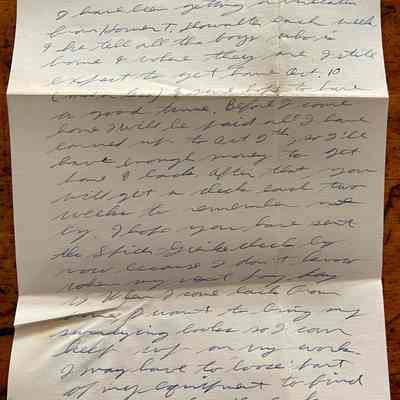 I have been getting a
from Homer T. each week
& he tell all the boys who is
home & where they are. I still
expect to get home Oct. 10
I sure hope to have
a good time. Before I come
home I will be paid all I have
earned up to Oct 7th, so I'll
have enough money to get
home & back. After that you
will get a check each two
weeks to remember me
by. I hope you have sent
the I like check by
now because I don't know
when my next pay day
is. When I come back from
home I want to bring my
surveying books so I can
help up on my work.
I may have to loose part
of my equipment to find